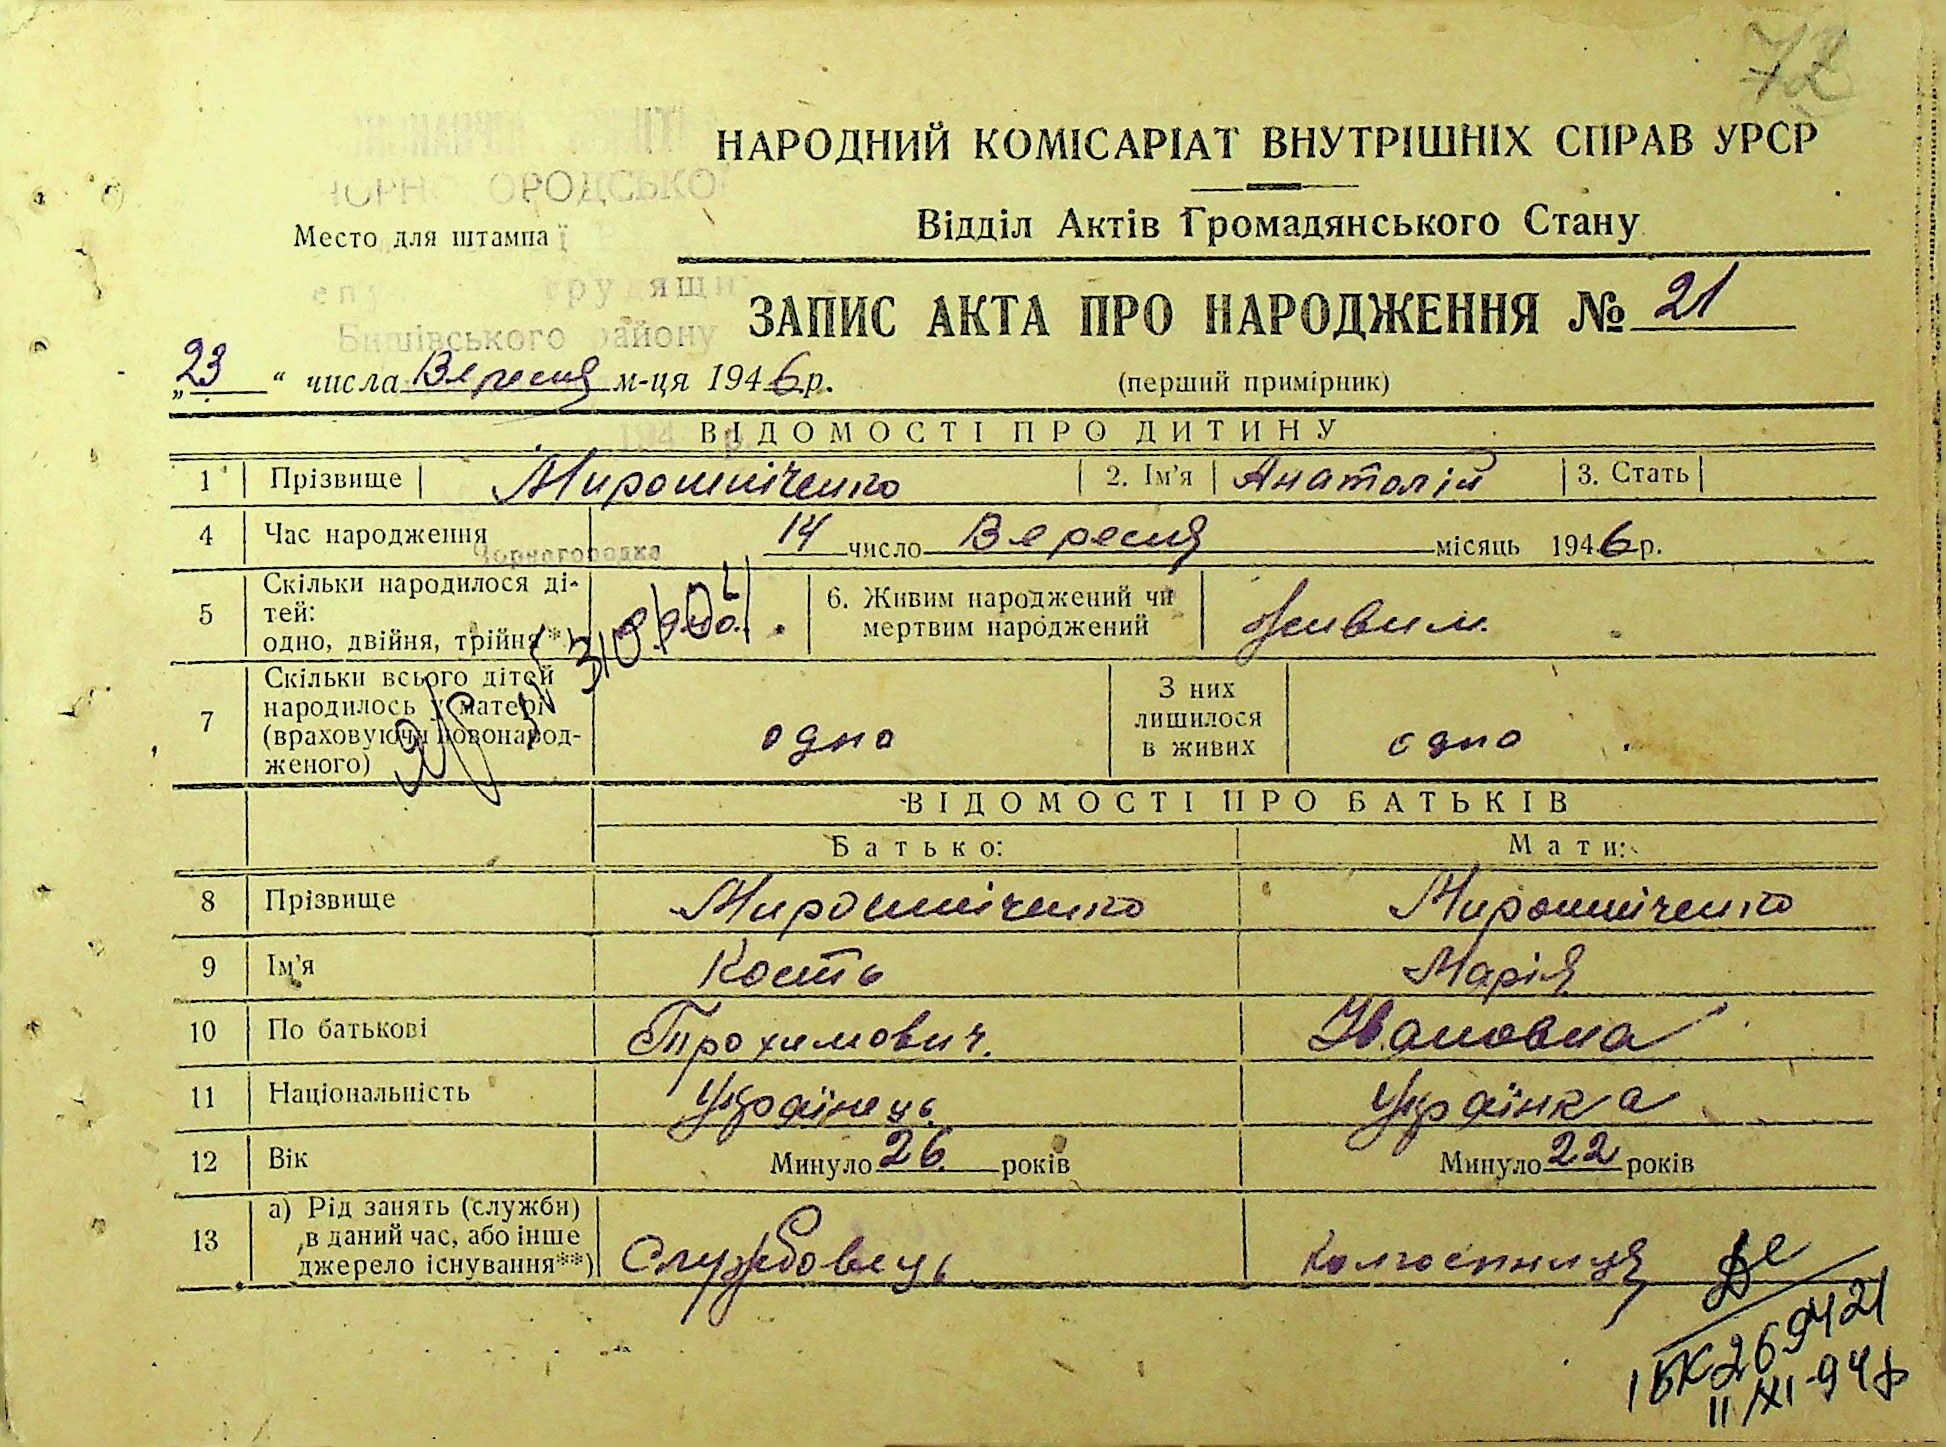 72
НАРОДНИЙ КОМІСАРІАТ ВНУТРІШНІХ СПРАВ УРСР
Место для штампа
Відділ Актів Громадянського Стану
ЗАПИС АКТА ПРО НАРОДЖЕННЯ № 21
Бишівського району
„23“ числа Вересня м-ця 1946 р.
(перший примірник)
ВІДОМОСТІ ПРО ДИТИНУ
1 Прізвище Мирошніченко 2. Ім'я Анатолій 3. Стать
4 Час народження 14 число Вересня місяць 1946 р.
Чорногородка
5 Скільки народилося ді-
тей:
одно, двійня, трійня*) одно. 6. Живим народжений чи
мертвим народжений Живим.
7 Скільки всього дітей
народилось у матері
(враховуючи новонарод-
женого) одно З них
лишилося
в живих одно
ВІДОМОСТІ ПРО БАТЬКІВ
Батько: Мати:
8 Прізвище Мирошніченко Мирошніченко
9 Ім'я Кость Марія
10 По батькові Трохимович. Івановна
11 Національність Українець Українка
12 Вік Минуло 26 років Минуло 22 років
13 а) Рід занять (служби)
в даний час, або інше
джерело існування**) Службовець Колгоспниця
ІБК 269421
11/XI-94р